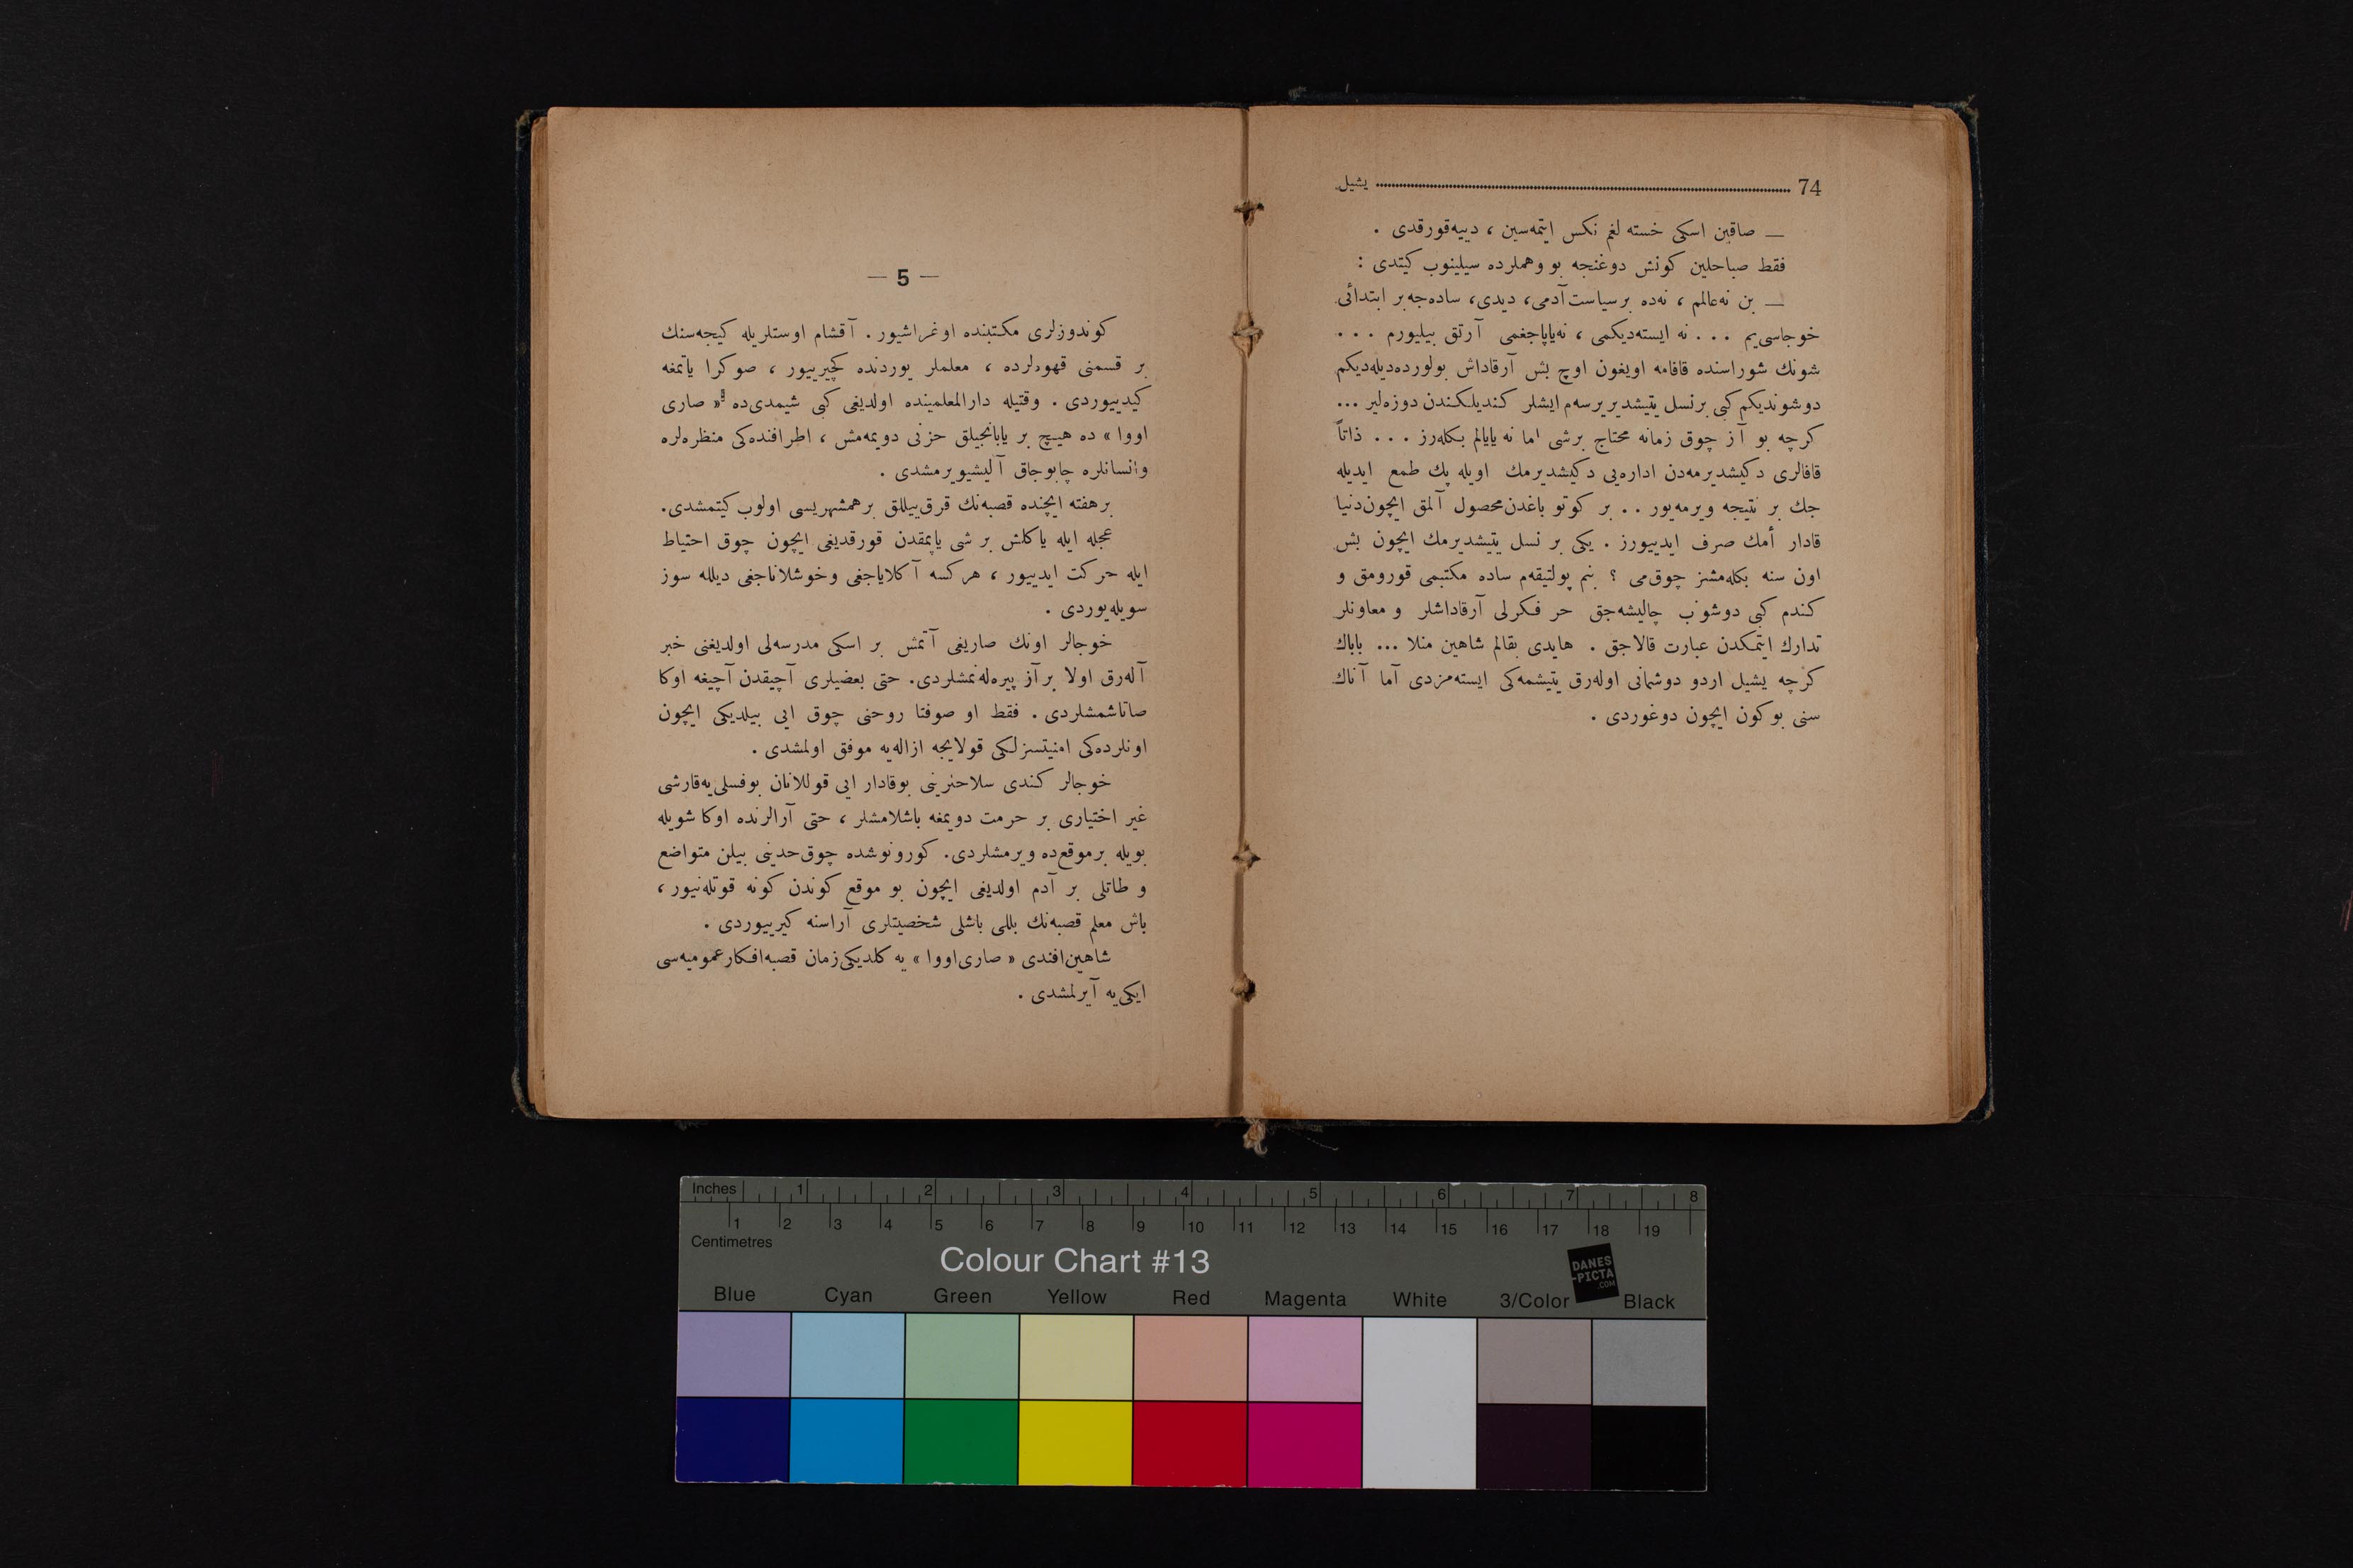 74 یشیل
— صاقین اسكی خسته لغم نكس ایتمه‌سین ، دییه قورقدی .
فقط صباحلین كونش دوغنجه بو وهملرده سیلینوب كیتدی :
— بن نه عالمم ، نه‌ده بر سیاست آدمی، دیدی، ساده‌جه بر ابتدائی
خوجاسی‌یم . . . نه ایسته‌دیكمی ، نه‌یاپاجغمی آرتق بیلیورم . . .
شونك شوراسنده قافامه اویغون اوچ بش آرقاداش بولورده‌دیله‌دیكم
دوشوندیكم كبی بر نسل یتیشدیریرسه‌م ایشلر كندیلكندن دوزه‌لیر ...
كرچه بو آز چوق زمانه محتاج بر شی اما نه یاپالم بكله‌رز . . . ذاتاً
قافالری دكیشدیرمه‌دن اداره‌یی دكیشدیرمك اویله پك طمع ایدیله
جك بر نتیجه ویرمه‌یور . . بر كوتو باغدن محصول آلمق ایچون دنیا
قادار أمك صرف ایدییورز . یكی بر نسل یتیشدیرمك ایچون بش
اون سنه بكله‌مشز چوق‌می ؟ بنم پولتیقه‌م ساده مكتبمی قورومق و
كندم كبی دوشونب چالیشه‌جق حر فكرلی آرقاداشلر و معاونلر
تدارك ایتمكدن عبارت قالاجق . هایدی بقالم شاهین منلا ... باباك
كرچه یشیل اردو دوشمانی اوله‌رق یتیشمه‌كی ایسته‌مزدی آما آناك
سنی بوكون ایچون دوغوردی .
— 5 —
كوندوزلری مكتبنده اوغراشیور . آقشام اوستلریله كیجه‌سنك
بر قسمنی قهوه‌لرده ، معلملر یوردنده كچیرییور ، صوكرا یاتمغه
كیدییوردی . وقتیله دارالمعلمینده اولدیغی كبی شیمدی‌ده « صاری
اووا » ده هیچ بر یابانجیلق حزنی دویمه‌مش ، اطرافنده‌كی منظره‌لره
وانسانلره چابوجاق آلیشیویرمشدی .
بر هفته ایچنده قصبه‌نك قرق‌ییللق بر همشهریسی اولوب كیتمشدی.
عجله ایله یاكلش بر شی یاپمقدن قورقدیغی ایچون چوق احتیاط
ایله حركت ایدییور ، هركسه آكلایاجغی وخوشلاناجغی دیلله سوز
سویله‌یوردی .
خوجالر اونك صاریغی آتمش بر اسكی مدرسه‌لی اولدیغنی خبر
آله‌رق اولا بر آز پیره‌له‌نمشلردی. حتی بعضیلری آچیقدن آچیغه اوكا
صاتاشمشلردی . فقط او صوفتا روحنی چوق ایی بیلدیكی ایچون
اونلرده‌كی امنیتسزلكی قولایجه ازاله‌یه موفق اولمشدی .
خوجالر كندی سلاحلرینی بوقادار ایی قوللانان بوفسلی‌یه قارشی
غیر اختیاری بر حرمت دویمغه باشلامشلر ، حتی آرالرنده اوكا شویله
بویله بر موقع‌ده ویرمشلردی. كورونوشده چوق حدینی بیلن متواضع
و طاتلی بر آدم اولدیغی ایچون بو موقع كوندن كونه قوتله‌نیور ،
باش معلم قصبه‌نك بللی باشلی شخصیتلری آراسنه كیرییوردی .
شاهین افندی « صاری اووا » یه كلدیكی زمان قصبه افكار عمومیه‌سی
ایكی‌یه آیرلمشدی .
Inches 1 2 3 4 5 6 7 8
1 2 3 4 5 6 7 8 9 10 11 12 13 14 15 16 17 18 19
Centimetres
Colour Chart #13
DANES
-PICTA
.COM
Blue Cyan Green Yellow Red Magenta White 3/Color Black